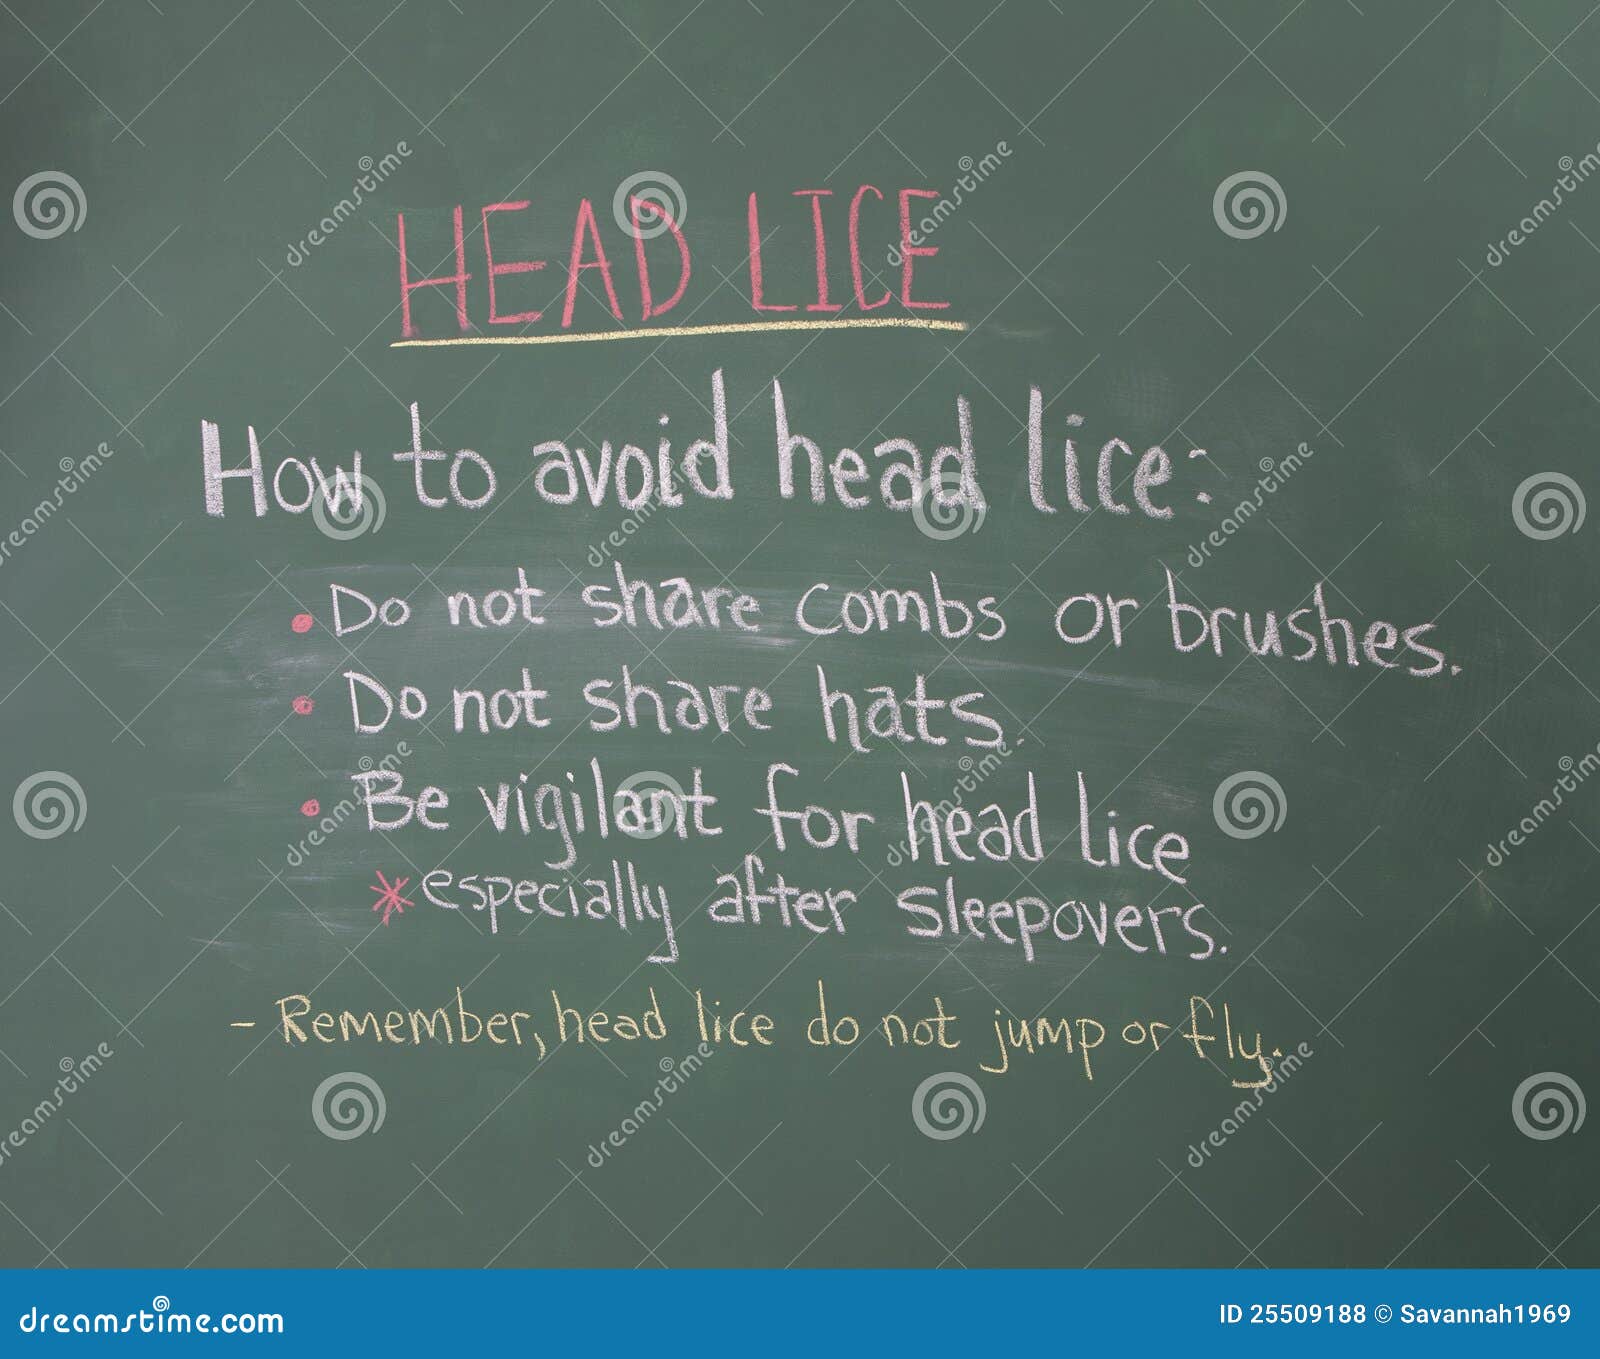 HEAD LICE
How to avoid head lice:
• Do not share combs or brushes.
• Do not share hats.
• Be vigilant for head lice
* especially after sleepovers.
- Remember, head lice do not jump or fly.
dreamstime
dreamstime.com
ID 25509188 © Savannah1969